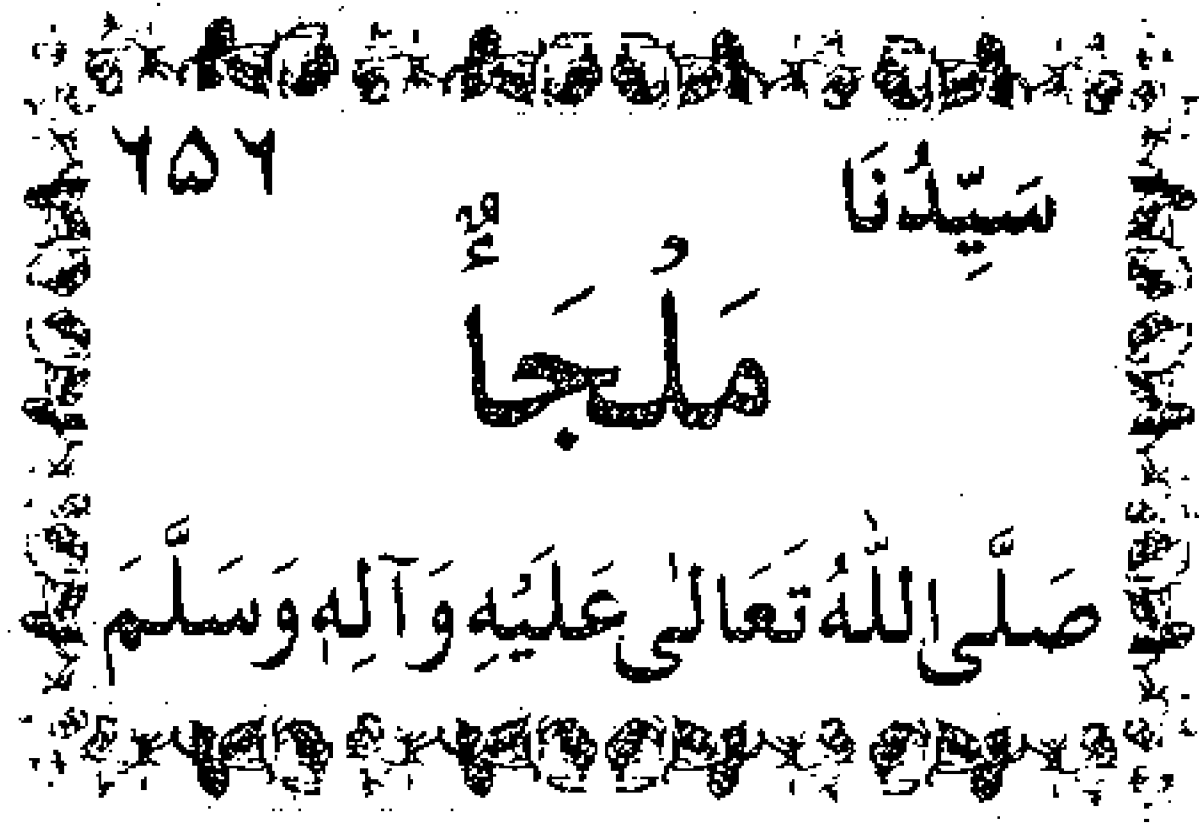 سَيِّدُنَا ۶۵۶
مَلْجَأٌ
صَلَّى اللّٰهُ تَعَالىٰ عَلَيْهِ وَآلِهٖ وَسَلَّمَ